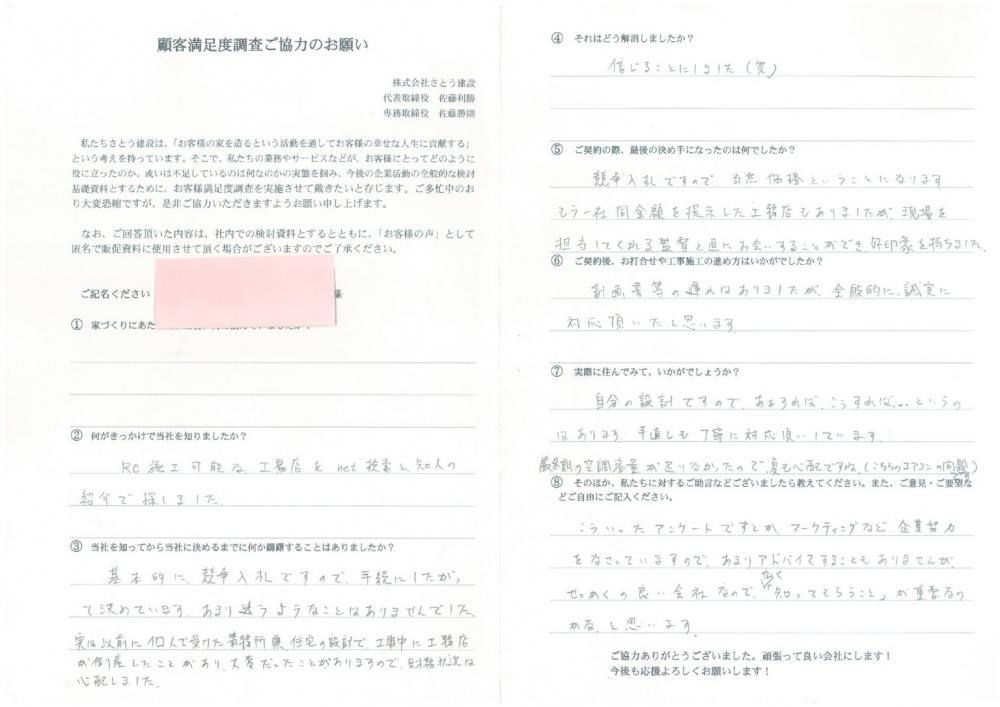 顧客満足度調査ご協力のお願い
株式会社さとう建設
代表取締役　佐藤利勝
専務取締役　佐藤勝則
私たちさとう建設は、「お客様の家を造るという活動を通してお客様の幸せな人生に貢献する」
という考えを持っています。そこで、私たちの業務やサービスなどが、お客様にとってどのように
役に立ったのか、或いは不足しているのは何なのかの実態を掴み、今後の企業活動の全般的な検討
基礎資料とするために、お客様満足度調査を実施させて戴きたいと存じます。ご多忙中のお
り大変恐縮ですが、是非ご協力いただきますようお願い申し上げます。
なお、ご回答頂いた内容は、社内での検討資料とするとともに、「お客様の声」として
匿名で販促資料に使用させて頂く場合がございますのでご了承ください。
ご記名ください　様
① 家づくりにあた
② 何がきっかけで当社を知りましたか？
RC施工可能な、工務店を net検索と、知人の
紹介で探しました。
③ 当社を知ってから当社に決めるまでに何か躊躇することはありましたか？
基本的に、競争入札ですので、手続にしたがっ
て決めています。あまり迷うようなことはありませんでした。
実は以前に個人で受けた事務所兼住宅の設計で、工事中に工務店
が倒産したことがあり、大変だったことがありますので、財務状況は
心配しました。
④ それはどう解消しましたか？
信じることにしました（笑）
⑤ ご契約の際、最後の決め手になったのは何でしたか？
競争入札ですので、当然価格ということになります。
もう一社同金額を提示した工務店もありましたが、現場を
担当してくれる監督と直にお会いすることができ、好印象を持ちました。
⑥ ご契約後、お打合せや工事施工の進め方はいかがでしたか？
計画書等の遅れはありましたが、全般的に、誠実に
対応頂いたと思います。
⑦ 実際に住んでみて、いかがでしょうか？
自分の設計ですので、ああすれば、こうすれば…というの
はあります。手直しも丁寧に対応頂いています。
厳冬期の空調容量が足りなかったので、夏も心配ですね。（こちらのエアコンの問題）
⑧ そのほか、私たちに対するご助言などございましたら教えてください。また、ご意見・ご要望な
どご自由にご記入ください。
こういったアンケートですとか、マーケティングなど、企業努力
をなさっていますので、あまりアドバイスすることもありませんが、
せっかくの良い会社なので、広く「知ってもらうこと」が重要なの
かな、と思います。
ご協力ありがとうございました。頑張って良い会社にします！
今後も応援よろしくお願いします！